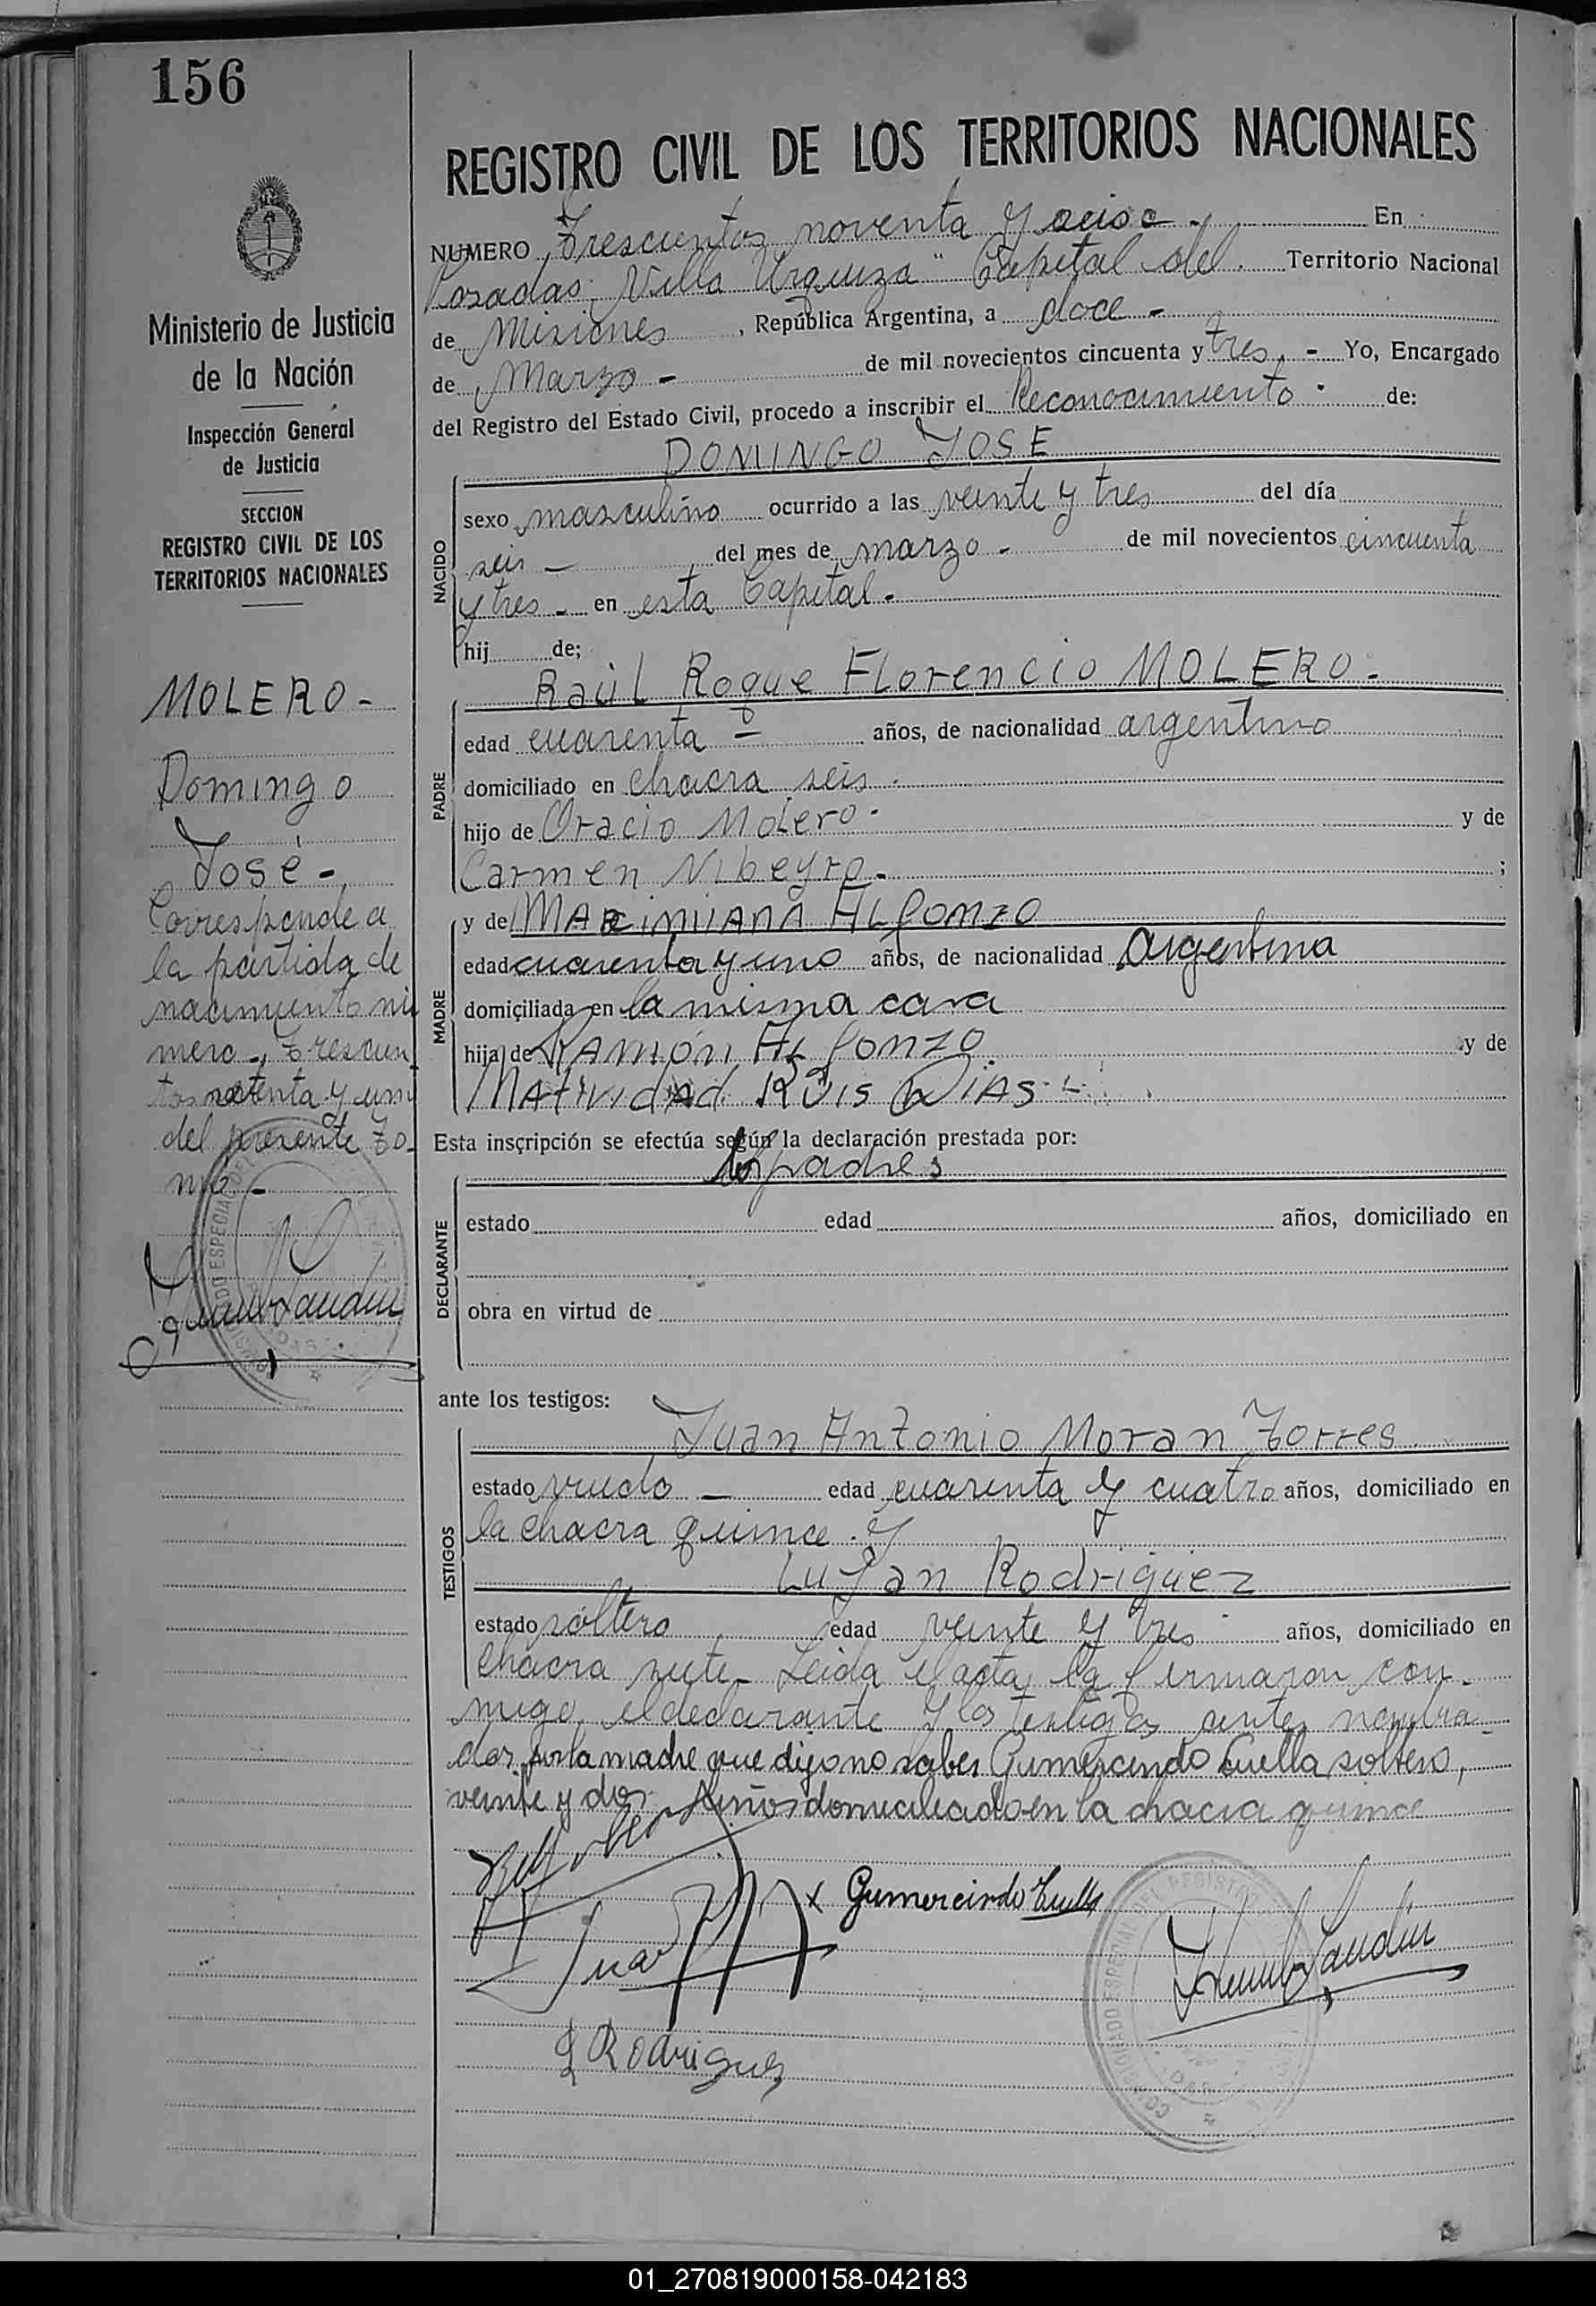 156
REGISTRO CIVIL DE LOS TERRITORIOS NACIONALES
NUMERO Trescuentos noventa y En
Posadas, Villa Urquiza" Capital del Territorio Nacional
de Misiones , República Argentina, a doce -
de Marzo - de mil novecientos cincuenta y tres, - Yo, Encargado
del Registro del Estado Civil, procedo a inscribir el Reconocimiento de:
DOMINGO JOSE
NACIDO
sexo masculino ocurrido a las veinte y tres del día
seis - del mes de marzo - de mil novecientos cincuenta
y tres - en esta Capital -
hij de;
Raúl Roque Florencio MOLERO -
PADRE
edad cuarenta - años, de nacionalidad argentino
domiciliado en chacra seis -
hijo de Oracio Molero - y de
Carmen Nibeyro - ;
MADRE
y de ALfonzo
edad cuarenta y uno años, de nacionalidad argentina
domiciliada en la misma casa
hija de RAMÓN ALfonzo y de
NAtividAd RUis DiAS -
Esta inscripción se efectúa según la declaración prestada por:
los padres
DECLARANTE
estado edad años, domiciliado en
obra en virtud de
ante los testigos:
TESTIGOS
Juan Antonio Moran Torres
estado viudo - edad cuarenta y cuatro años, domiciliado en
la chacra quince y
Lujan Rodriguez
estado soltero edad veinte y tres años, domiciliado en
chacra siete - Leida el acta la firmaron con
migo el declarante y los testigos antes nombra-
dos, por la madre que dijo no saber Gumercindo Cuella soltero,
veinte y dos años domiciliado en la chacra quince
x Gumercindo Cuella
Juan
L Rodriguez
Ministerio de Justicia
de la Nación
Inspección General
de Justicia
SECCION
REGISTRO CIVIL DE LOS
TERRITORIOS NACIONALES
MOLERO -
Domingo
José -
Corresponde a
la partida de
nacimiento nú
mero - Trescuen
tos y uno
del presente to-
mo -
01_270819000158-042183